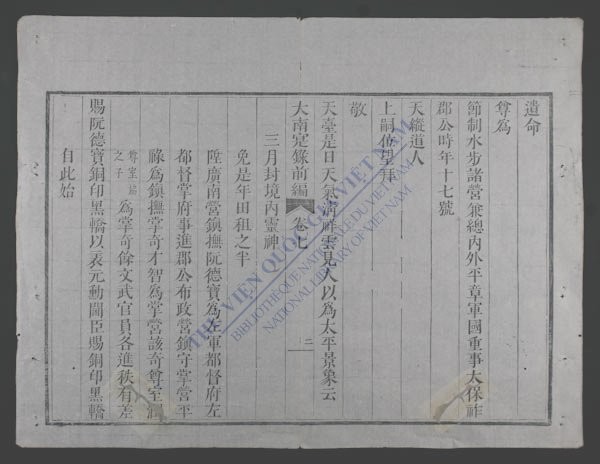 遺命
尊爲
節制水步諸營兼總內外平章軍國重事太保祚
郡公時年十七號
天縱道人
上嗣位望拜
敬
天臺是日天氣清祥雲見人以爲太平景象云
大南寔錄前編 卷七 二
三月封境內靈神
免是年田租之半
陞廣南營鎮撫阮德寶爲左軍都督府左
都督掌府事進郡公布政營鎮守掌營平
祿爲鎮撫掌奇才智爲掌營該奇尊室潤
尊室
之子
爲掌奇餘文武官員各進秩有差
賜阮德寶銅印黑轎以表元勳閫臣賜銅印黑轎
自此始
THƯ VIỆN QUỐC GIA VIỆT NAM
BIBLIOTHÈQUE NATIONALE DU VIETNAM
NATIONAL LIBRARY OF VIETNAM